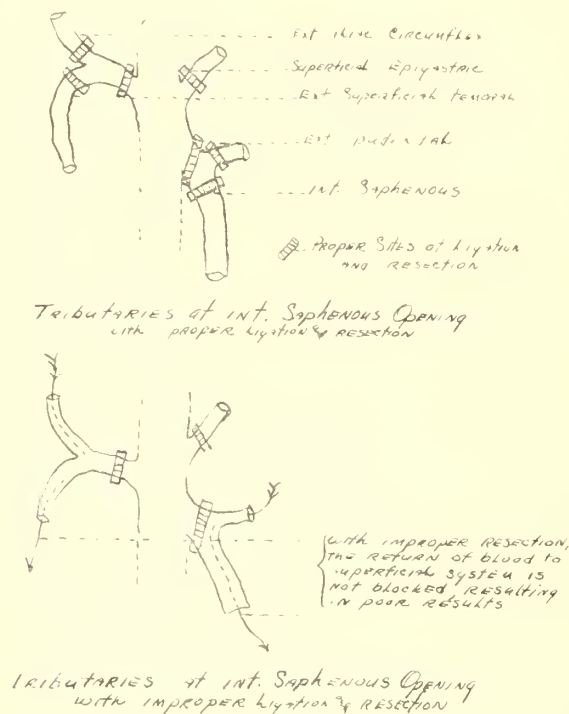 Ext iliac Circumflex
Superficial Epigastric
Ext Superficial femoral
Ext pudental
Int. Saphenous
Proper Sites of Ligation
and resection
Tributaries at int. Saphenous Opening
with proper Ligation & resection
with improper resection,
the return of blood to
superficial system is
not blocked resulting
in poor results
Tributaries at int. Saphenous Opening
with improper Ligation & resection